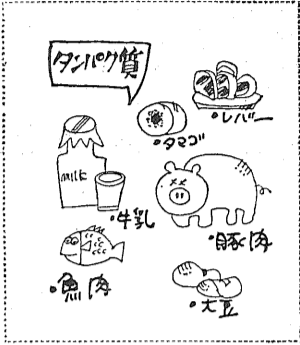 タンパク質
・レバー
・タマゴ
milk
・牛乳
・豚肉
・魚肉
・大豆